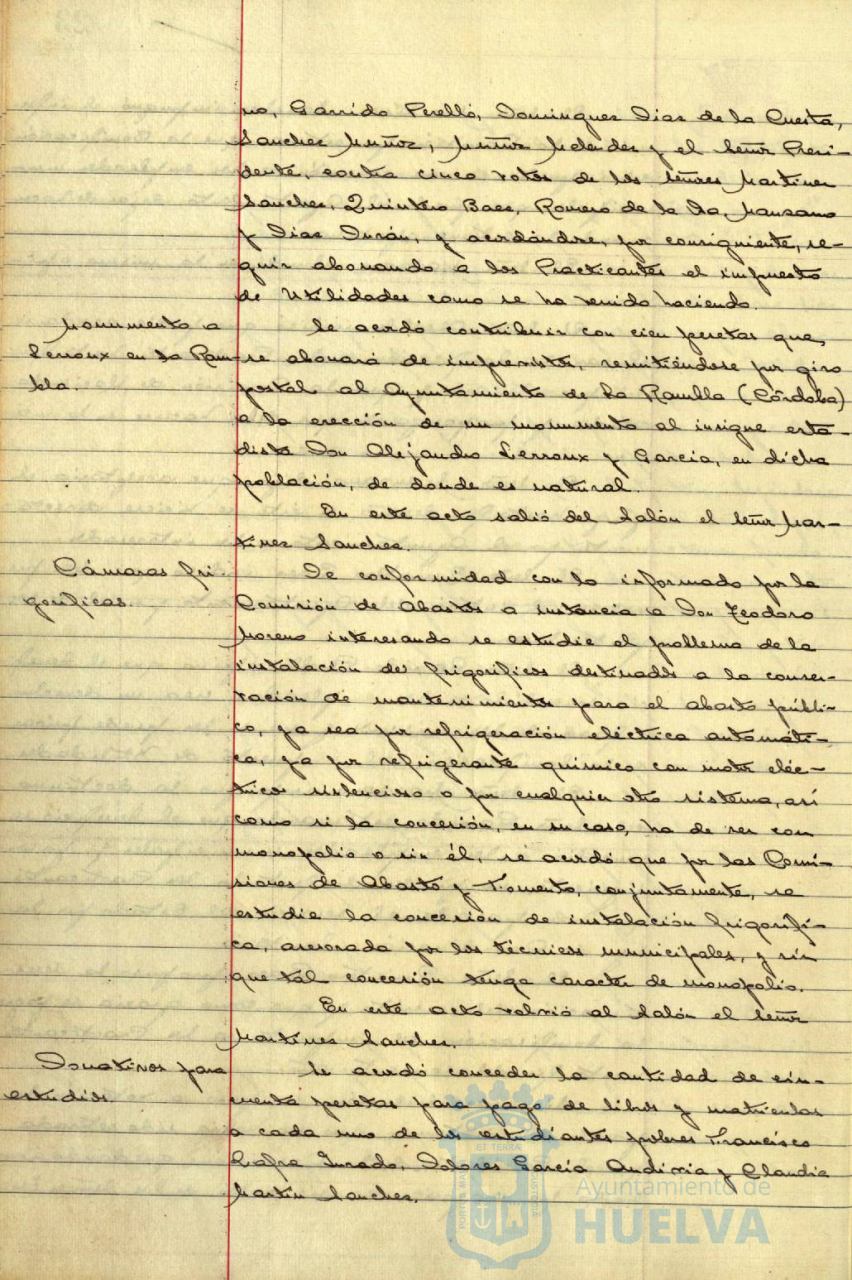 no, Garrido Perelló, Dominguez Diaz de la Cuesta,
Sanchez Muñoz, Muñoz Melendez y el Señor Presi-
dente, contra cinco votos de los señores Martinez
Sanchez, Quintero Baez, Romero de la Manzano
y Diaz Durán, y acordándose, por consiguiente, se-
guir abonando a los Practicantes el impuesto
de Utilidades como se ha venido haciendo.
Monumento a
Lerroux en la Ram-
bla.
Se acordó contribuir con cien pesetas que,
se abonará de imprevistos, remitiéndose por giro
postal al Ayuntamiento de La Rambla (Córdoba)
a la erección de un monumento al insigne esta-
dista Don Alejandro Lerroux y García, en dicha
población, de donde es natural.
En este acto salió del Salón el Señor Mar-
tinez Sanchez.
Cámaras fri-
goríficas.
De conformidad con lo informado por la
Comisión de Abastos a instancia a Don Teodoro
Moreno interesando se estudie el problema de la
instalación de frigoríficos destinados a la conser-
vación de mantenimientos para el abasto públi-
co, ya sea por refrigeración eléctrica automáti-
ca, ya por refrigerante químico con motor eléc-
trico silencioso o por cualquier otro sistema, así
como si la concesión, en su caso, ha de ser con
monopolio o sin él, se acordó que por las Comi-
siones de Abasto y Fomento, conjuntamente, se
estudie la concesión de instalación frigorífi-
ca, asesorada por los técnicos municipales, y sin
que tal concesión tenga caracter de monopolio.
En este acto volvió al Salón el Señor
Martinez Sanchez.
Donativos para
estudios.
Se acordó conceder la cantidad de cin-
cuenta pesetas para pago de libros y matriculas
a cada uno de los estudiantes pobres Francisco
Zafra Jurado, Dolores García y Claudio
Martin Sanchez.
Ayuntamiento de
HUELVA